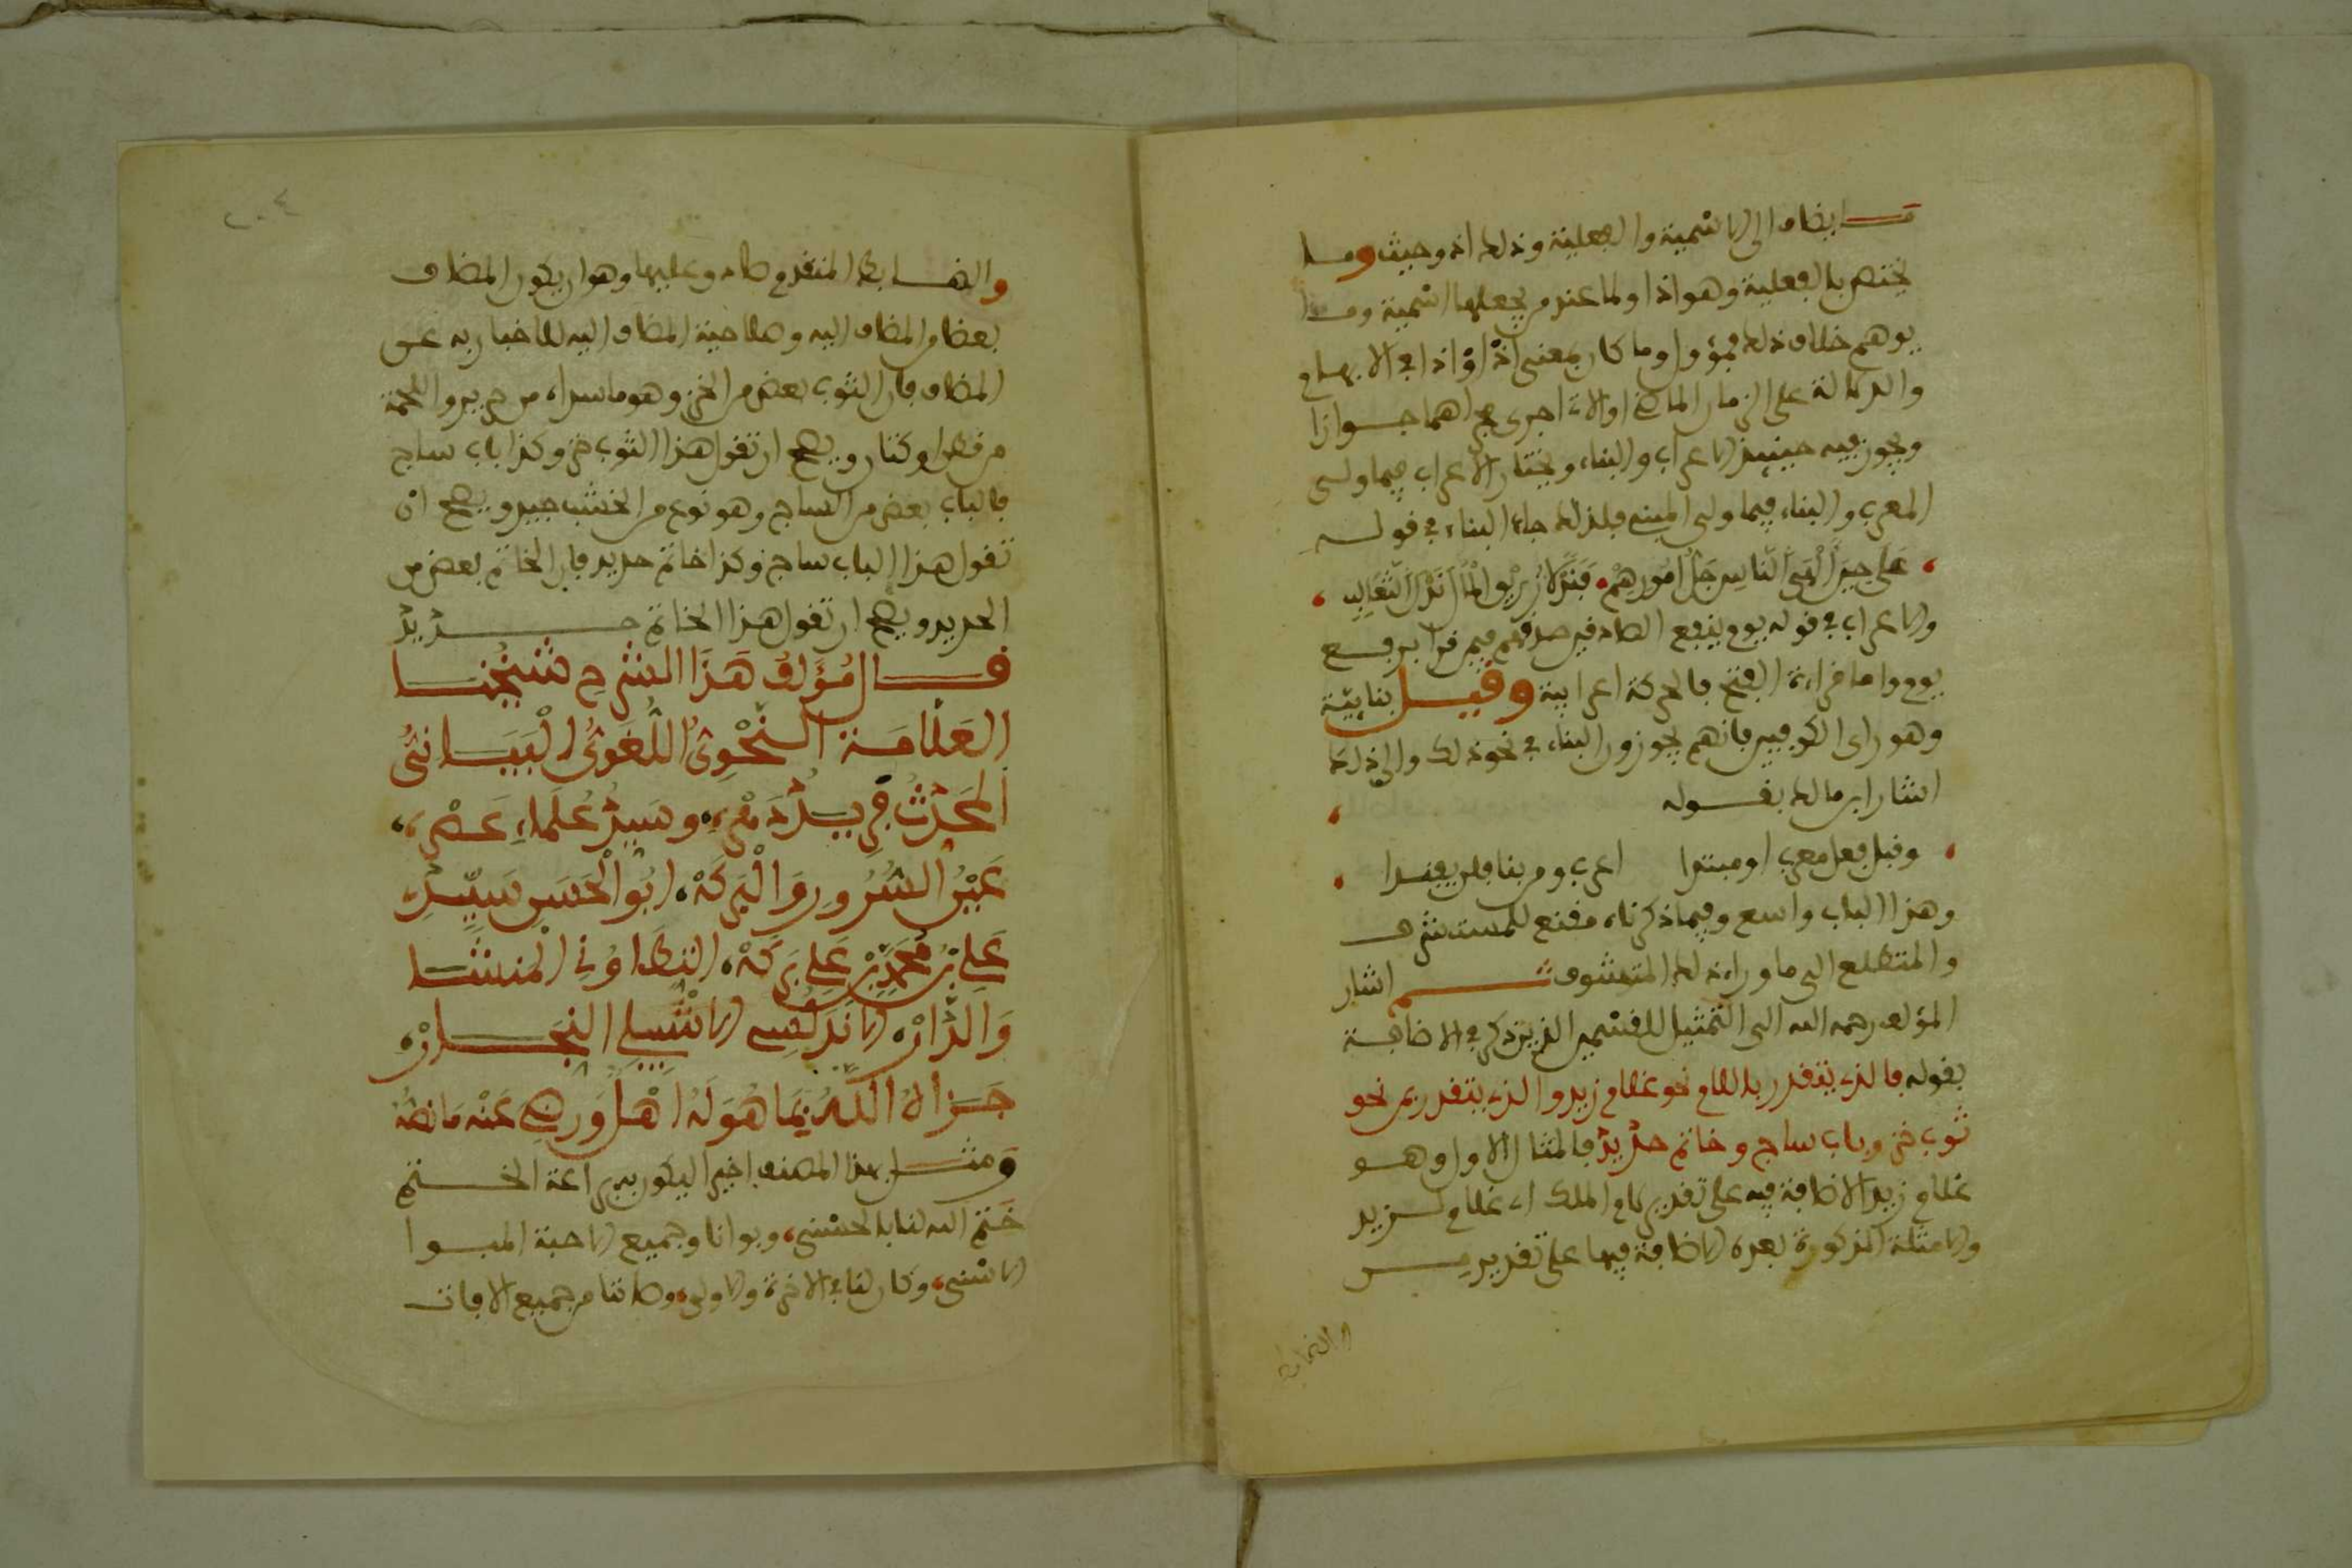 ما يضاف الى الاسمية والفعلية وذلك اذ وحيث وما
يختص بالفعلية وهو اذا ولما عند من يجعلها اسمية وما
يوهم خلاف ذلك فمؤول وما كان بمعنى اذْ اوْ اذا في الابهام
والدلالة على الزمان الماضي او الاتي اجرى مجراهما جوازا
ويجوز فيه حينيذ الاعراب والبناء ويختار الاعراب فيما ولي
المعرب والبناء فيما ولي المبني فلذلك جاء البناء في قوله
عَلَى حِينَ أَلْهَى النَّاسَ جُلُّ أُمُورِهِمْ فَنَدْلًا زُرَيْقُ الْمَالَ نَدْلَ الثَّعَالِبِ
والاعراب في قوله يوم ينفع الصادقين صدقهم فيمن قرأ برفع
يوم واما قراءة الفتح فالحركة اعرابية وقيل بنائية
وهو راى الكوفيين فانهم يجوزون البناء في نحو ذلك والى ذلك
اشار ابن مالك بقوله
وقبل فعل معرب او مبتدا اعرب ومن بنا فلن يفندا
وهذا الباب واسع وفيما ذكرناه مقنع للمستشرف
والمتطلع الى ما وراء ذلك المتشوف ثم اشار
المؤلف رحمه الله الى التمثيل للقسمين الذين ذكر في الاضافة
بقوله فالذي يتقدر باللام نحو غلام زيد والذي يتقدر بمن نحو
ثوب خز وباب ساج وخاتم حديد فالمثال الاول وهو
غلام زيد الاضافة فيه على تقدير لام الملك اي غلام لزيد
والامثلة المذكورة بعده الاضافة فيها على تقدير من
والضابط
٢٠٤
والضابط المتقدم صادق عليها وهو ان يكون المضاف
بعضا من المضاف اليه وصلاحية المضاف اليه للاخبار به عن
المضاف فان الثوب بعض من الخز وهو ما سداه من حرير واللحمة
من قطن او كتان ويصح ان تقول هذا الثوب خز وكذا باب ساج
فالباب بعض من الساج وهو نوع من الخشب جيد ويصح ان
تقول هذا الباب ساج وكذا خاتم حديد فان الخاتم بعض من
الحديد ويصح ان تقول هذا الخاتم حديد
قال مُؤَلِّفُ هَذَا الشَّرح شيخنا
العَلَّامَة النَّحْوِيُّ اللُّغَوِيُّ الْبَيَانيُّ
المحَدِّثُ فَرِيدُ دَهْرِهِ، وسَيِّدُ عُلَمَاءِ عَصْرِهِ،
عَيْنُ السُّرُورِ وَالْبَرَكَهْ، ابُو الْحَسَنِ سَيِّدِي
عَلِي بْنُ مُحَمَّدِ بْنِ عَلِي بَرَكَهْ، التِّطَاوُني المنشا
وَالدَّارْ، الانْدَلُسِي الاشْبِيلي النِّجَارْ،
جَزَاهُ اللَّهُ بِمَا هُوَ لَهُ اهْلٌ وَرَضِيَ عَنْه مَا نصُّهُ
ومثل بهذا المصنف اخيرا ليكون ببراعة الختم
ختم الله لنا بالحسنى، وبوانا وجميع الاحبة المبوا
الاسنى، وكان لنا في الاخرة والاولى، وصاننا من جميع الافات